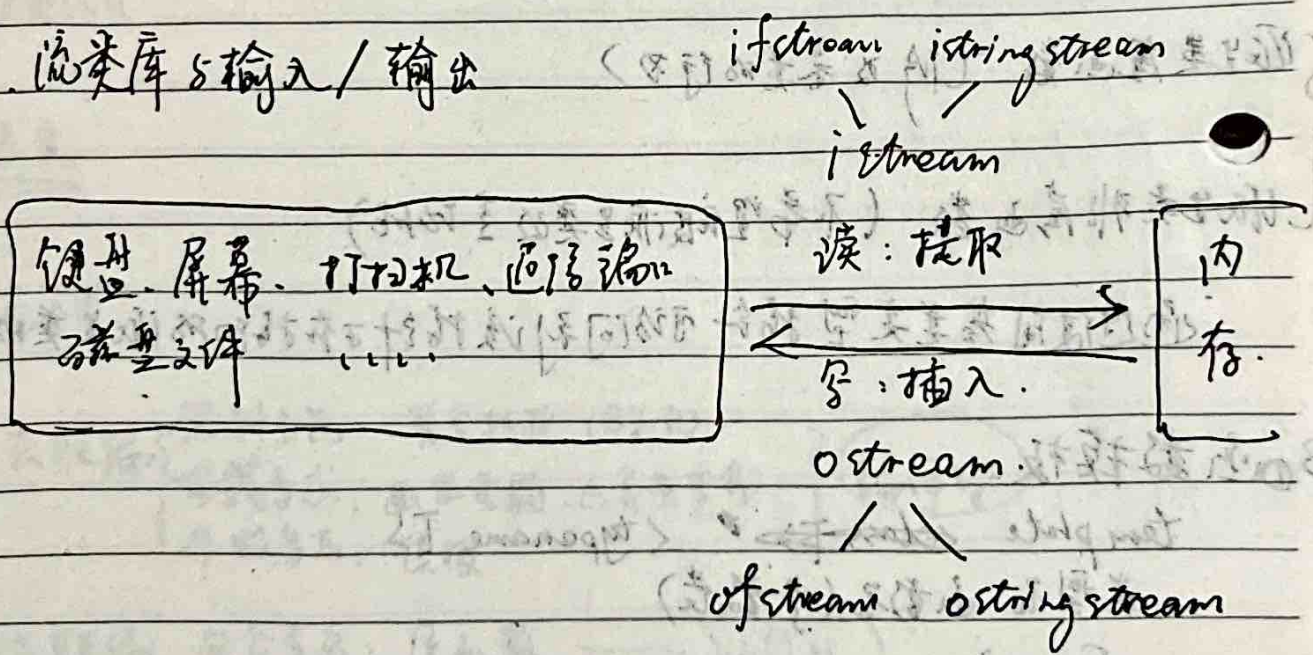 流类库与输入/输出
ifstream istringstream
istream
键盘、屏幕、打扫机、通信端口
磁盘文件 ....
读:提取
写:插入.
内
存.
ostream.
ofstream ostringstream